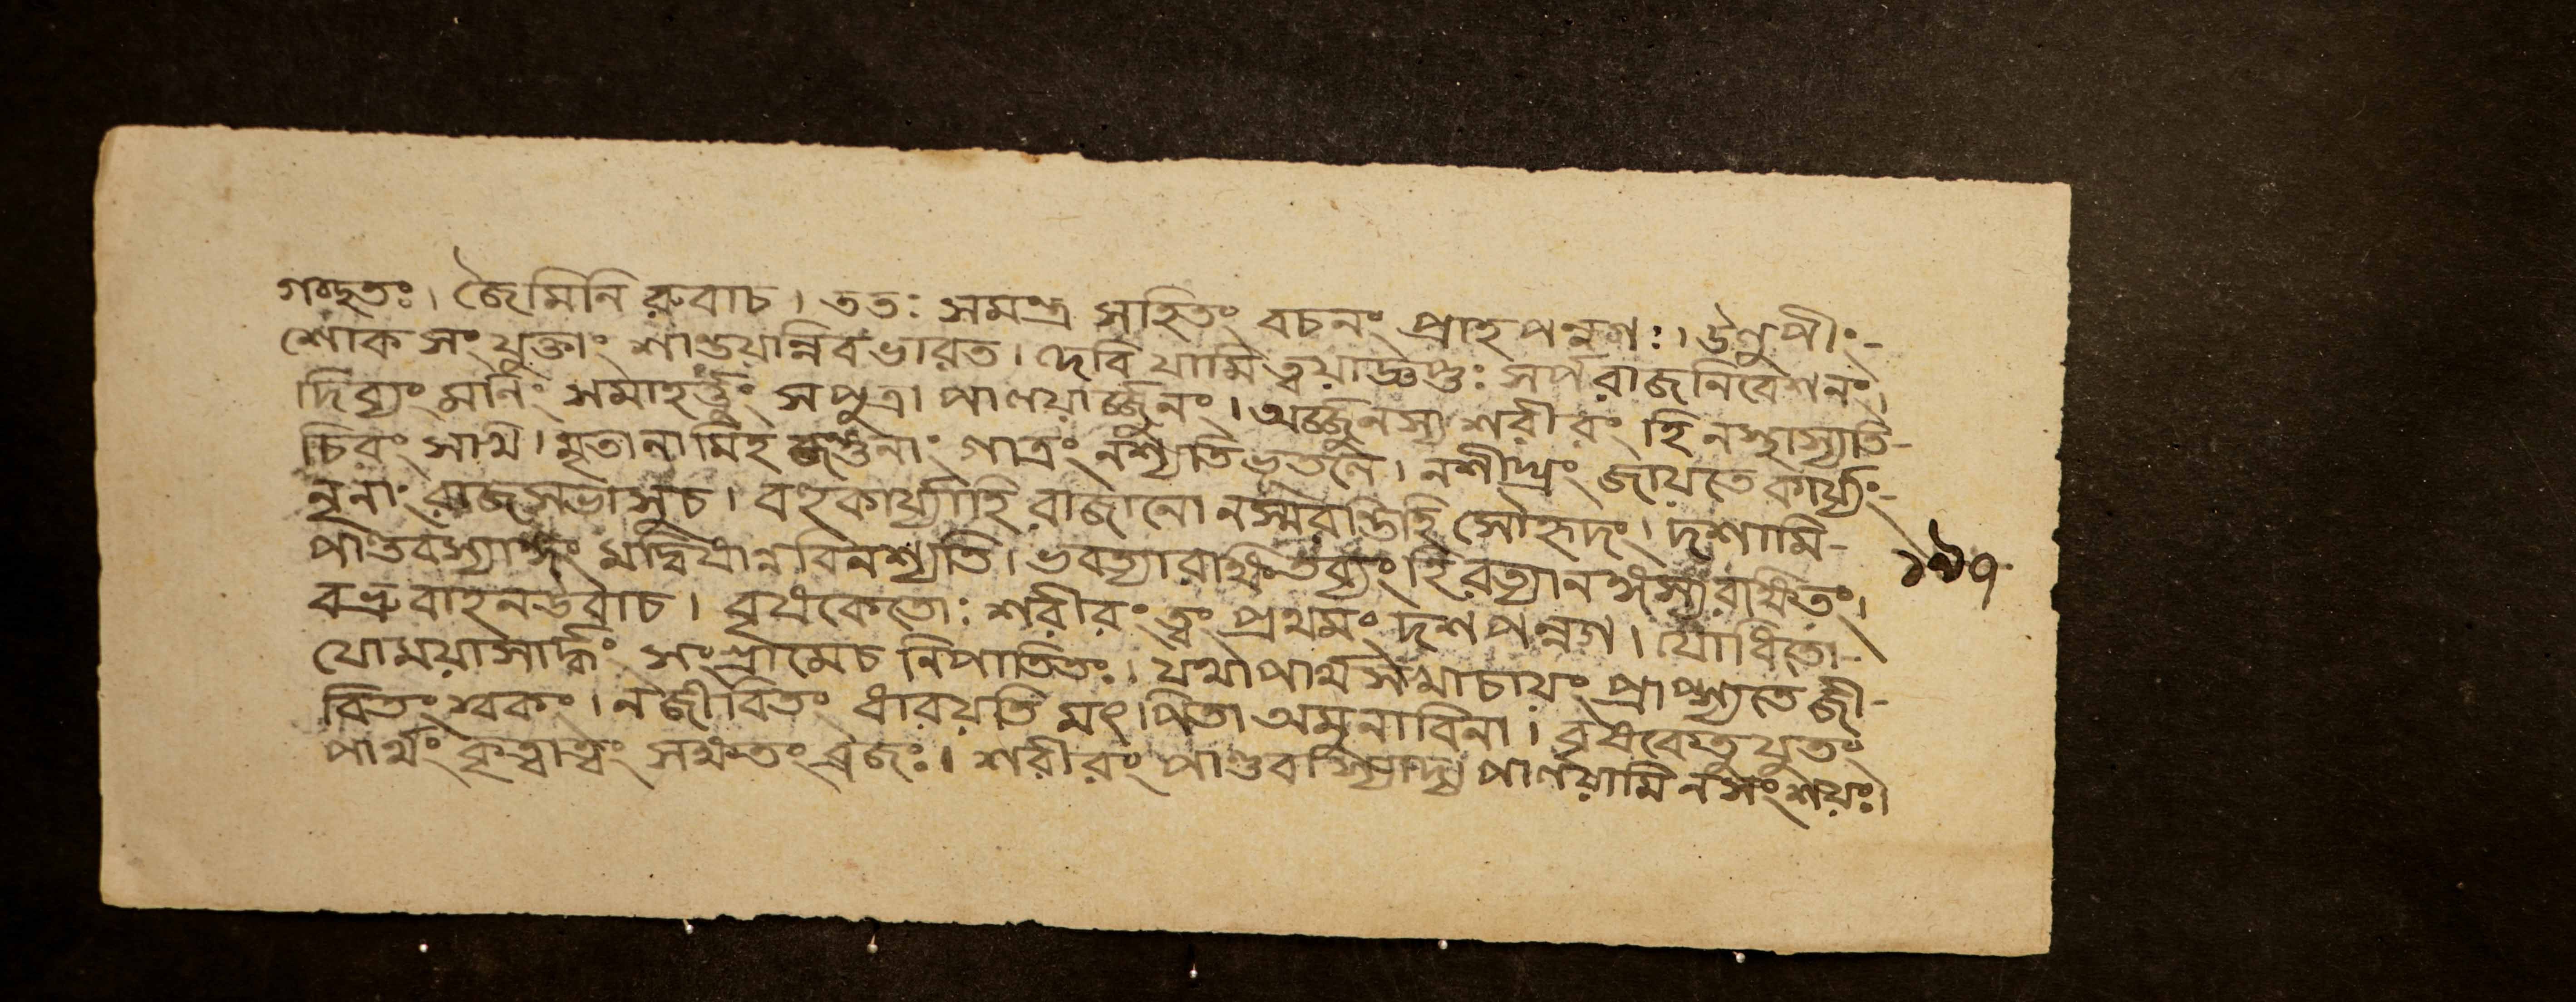 গদ্ভুতঃ। জৈমিনি রুবাচ। ততঃ সমন্ত্র সহিতং বচনং প্রাহ পন্নগঃ। উলুপীং-
শোক সংযুক্তাং শান্তয়ান্নিব ভারত। দেবি যামি ত্বয়াজ্ঞপ্তঃ সর্পরাজনিবেশনং।
দিব্যং মনিং সমাহর্ত্তুং সপুত্রা পালয়ার্জ্জুনং। অর্জ্জুনস্য শরীরং হি নস্থাস্যতি-
চিরং সখি। মৃতানামিহ জন্তুনাং গাত্রং নশ্যতি ভূতলে। নশীঘ্রং জায়তে কার্য্যং-
নৃনাং রাজসভাসুচ। বহুকার্য্যাহি রাজানো নস্মরন্তিহি সৌহৃদং। দশামি-
পাণ্ডবস্যাঙ্গং মদ্বিষান্নবিনশ্যতি। ভবত্যা রক্ষিতব্যং হি
বভ্রুবাহন উবাচ। বৃষকেতোঃ শরীরং ত্বং প্রথমং দশ পন্নগ। যোধিতা-
যোময়াসার্দ্ধং সংগ্রামেচ নিপাতিতঃ। যথাপার্থসমাচায়ং প্রাপ্স্যতে জী-
বিতং স্বকং। নজীবিতং ধারয়তি মৎপিতা অমুনাবিনা। বৃষকেতুযুতং
পার্থং কৃত্বাত্বং সক্ষতং ব্রজঃ। শরীরং পাণ্ডবস্যাদ্য পালয়ামি নসংশয়ঃ।
১৯৭